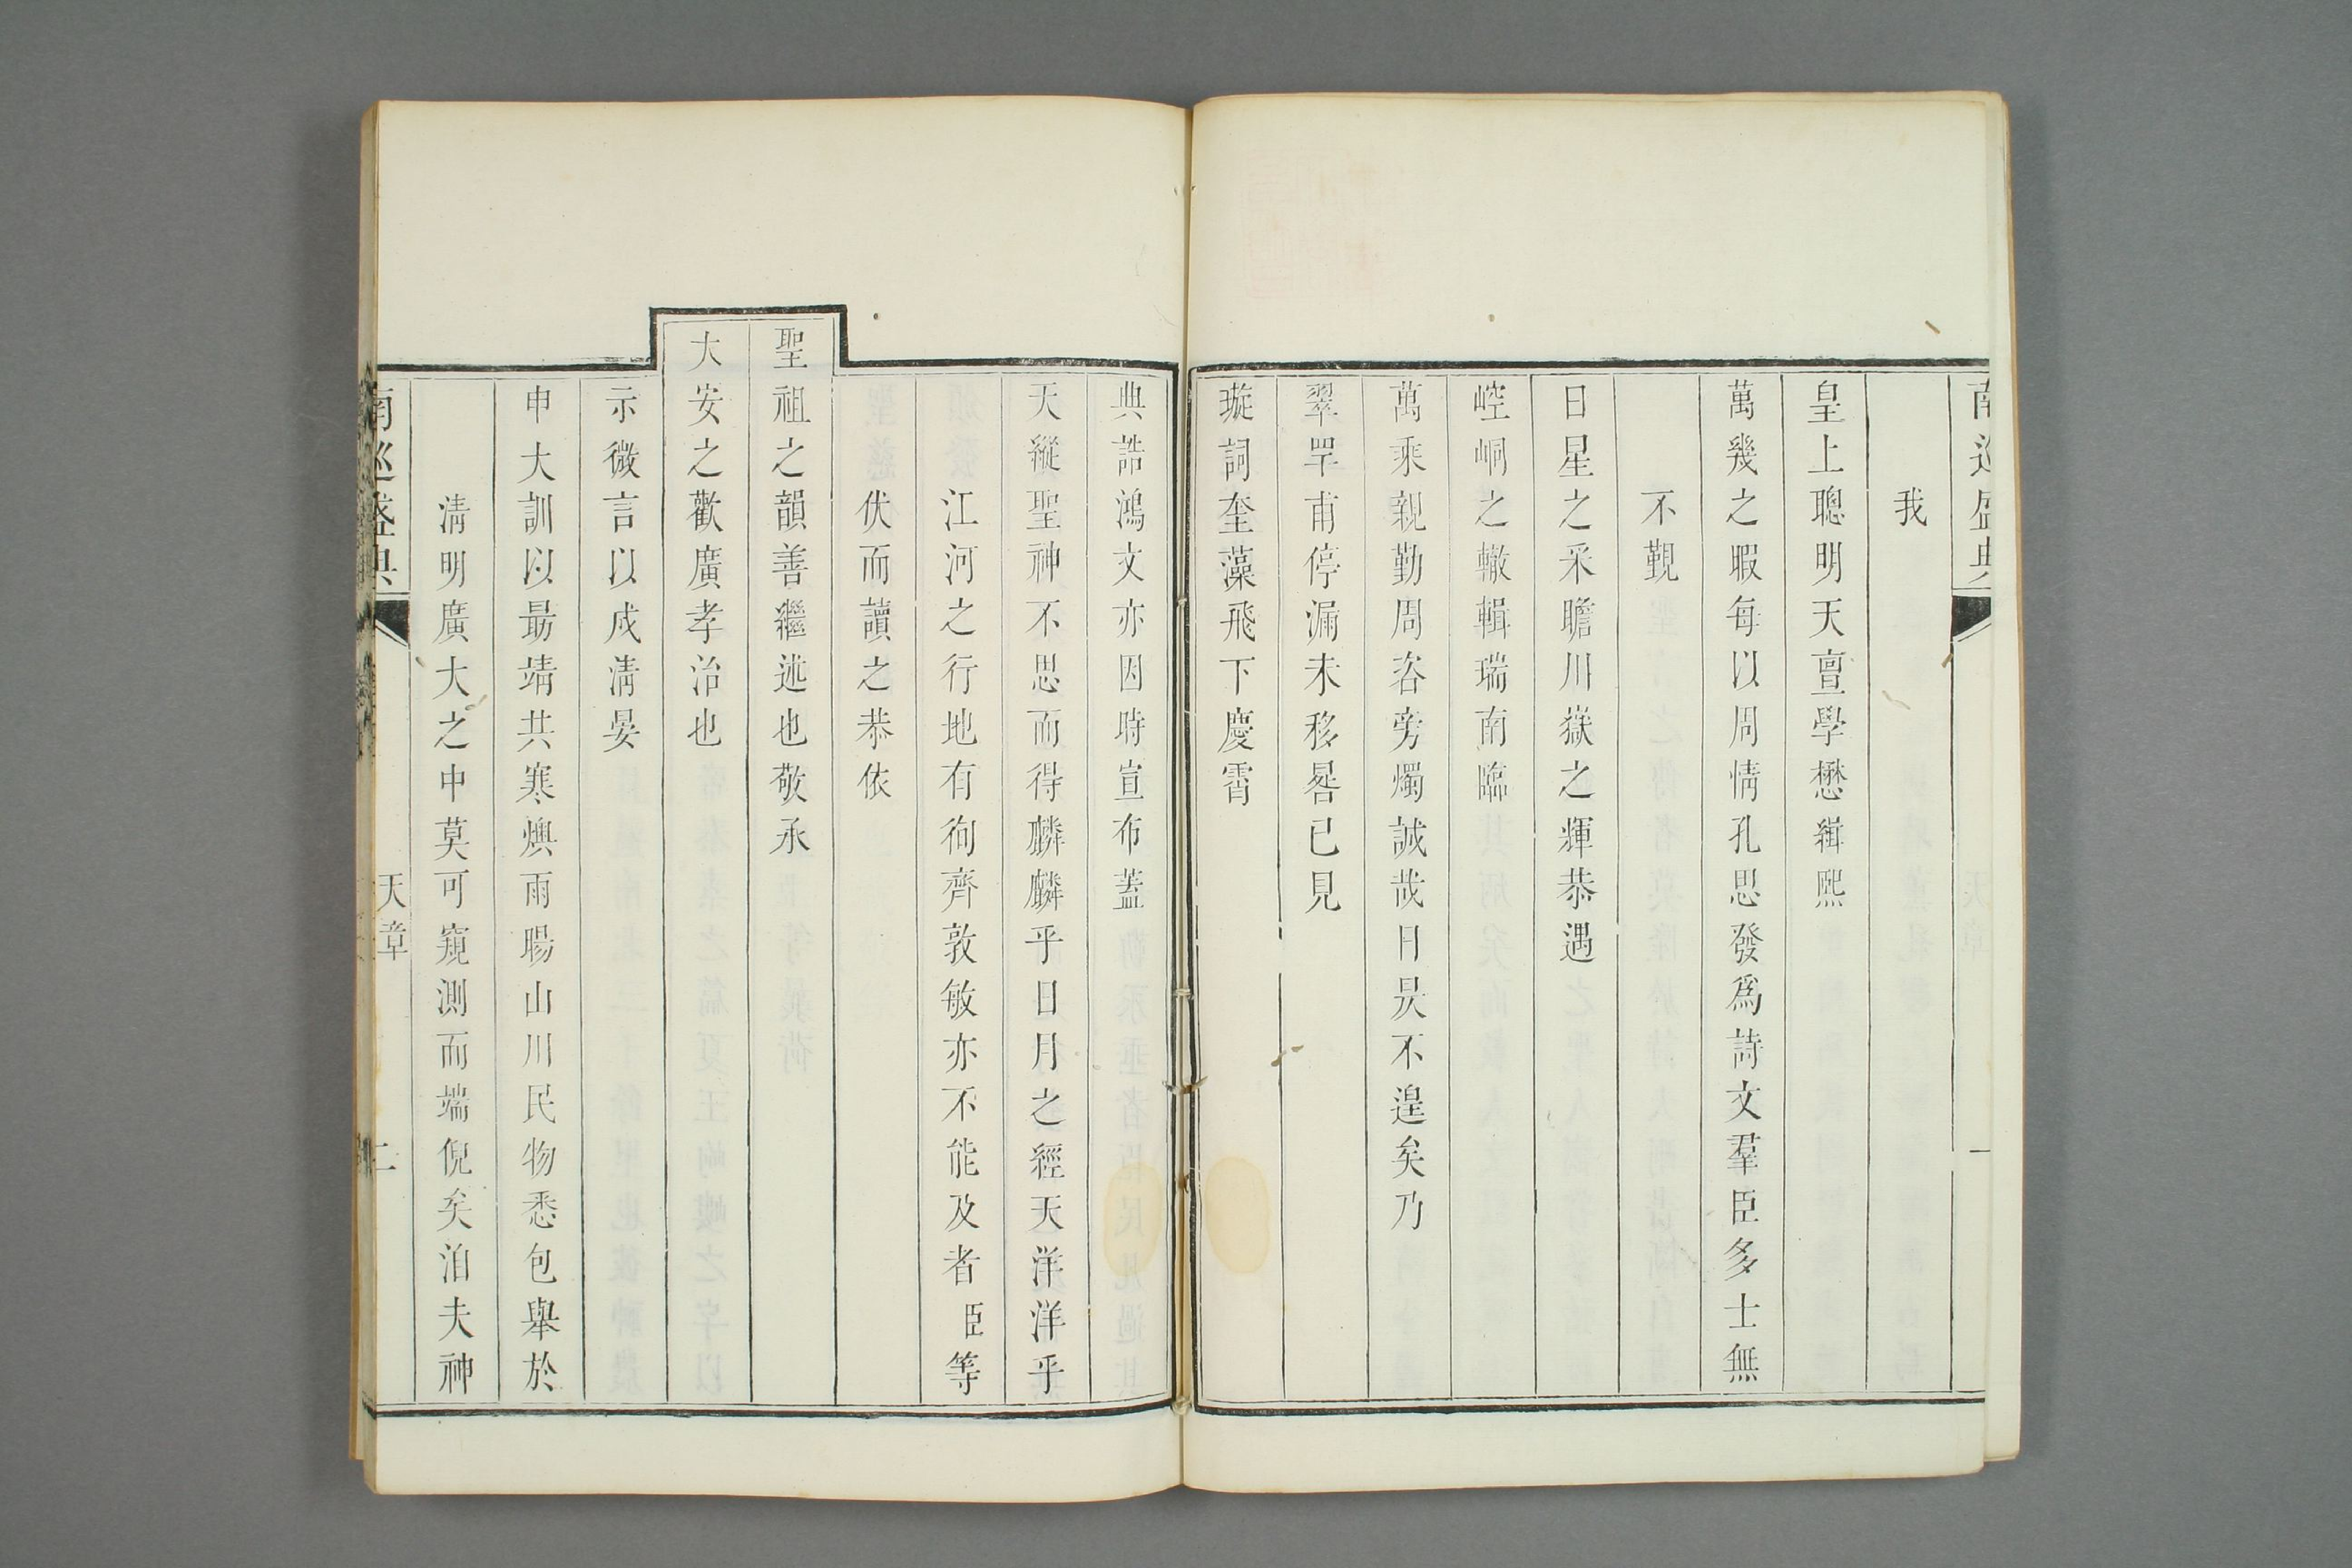 南巡盛典
一
我
皇上聰明天亶學懋緝熙
萬幾之暇每以周情孔思發爲詩文羣臣多士無
不覲
日星之采瞻川嶽之輝恭遇
崆峒之轍輯瑞南臨
萬乘親勤周咨旁燭誠哉日昃不遑矣乃
翠罕甫停漏未移晷已見
璇詞奎藻飛下慶霄
典誥鴻文亦因時宣布蓋
天縱聖神不思而得麟麟乎日月之經天洋洋乎
江河之行地有徇齊敦敏亦不能及者臣等
伏而讀之恭依
聖祖之韻善繼述也敬承
大安之歡廣孝治也
示微言以成清晏
申大訓以勗靖共寒燠雨暘山川民物悉包舉於
清明廣大之中莫可窺測而端倪矣洎夫神
南巡盛典
天章
二